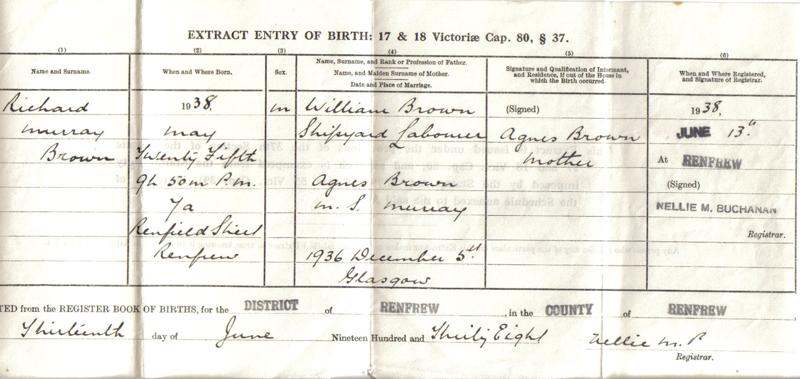 EXTRACT ENTRY OF BIRTH: 17 & 18 Victoriæ Cap. 80, § 37.
(1) (2) (3) (4) (5) (6)
Name and Surname.
When and Where Born.
Sex.
Name, Surname, and Rank or Profession of Father.
Name, and Maiden Surname of Mother.
Date and Place of Marriage.
Signature and Qualification of Informant,
and Residence, if out of the House in
which the Birth occurred.
When and Where Registered,
and Signature of Registrar.
Richard
Murray
Brown
1938,
May
Twenty Fifth
9h 50m P.M.
7a
Renfield Street
Renfrew
M
William Brown
Shipyard Labourer
Agnes Brown
M. S. Murray
1936 December 5th
Glasgow
(Signed)
Agnes Brown
Mother
1938,
JUNE 13th
At RENFREW
(Signed)
NELLIE M. BUCHANAN
Registrar.
TED from the REGISTER BOOK OF BIRTHS, for the DISTRICT of RENFREW, in the COUNTY of RENFREW
Thirteenth day of June Nineteen Hundred and Thirty Eight Nellie M.
Registrar.